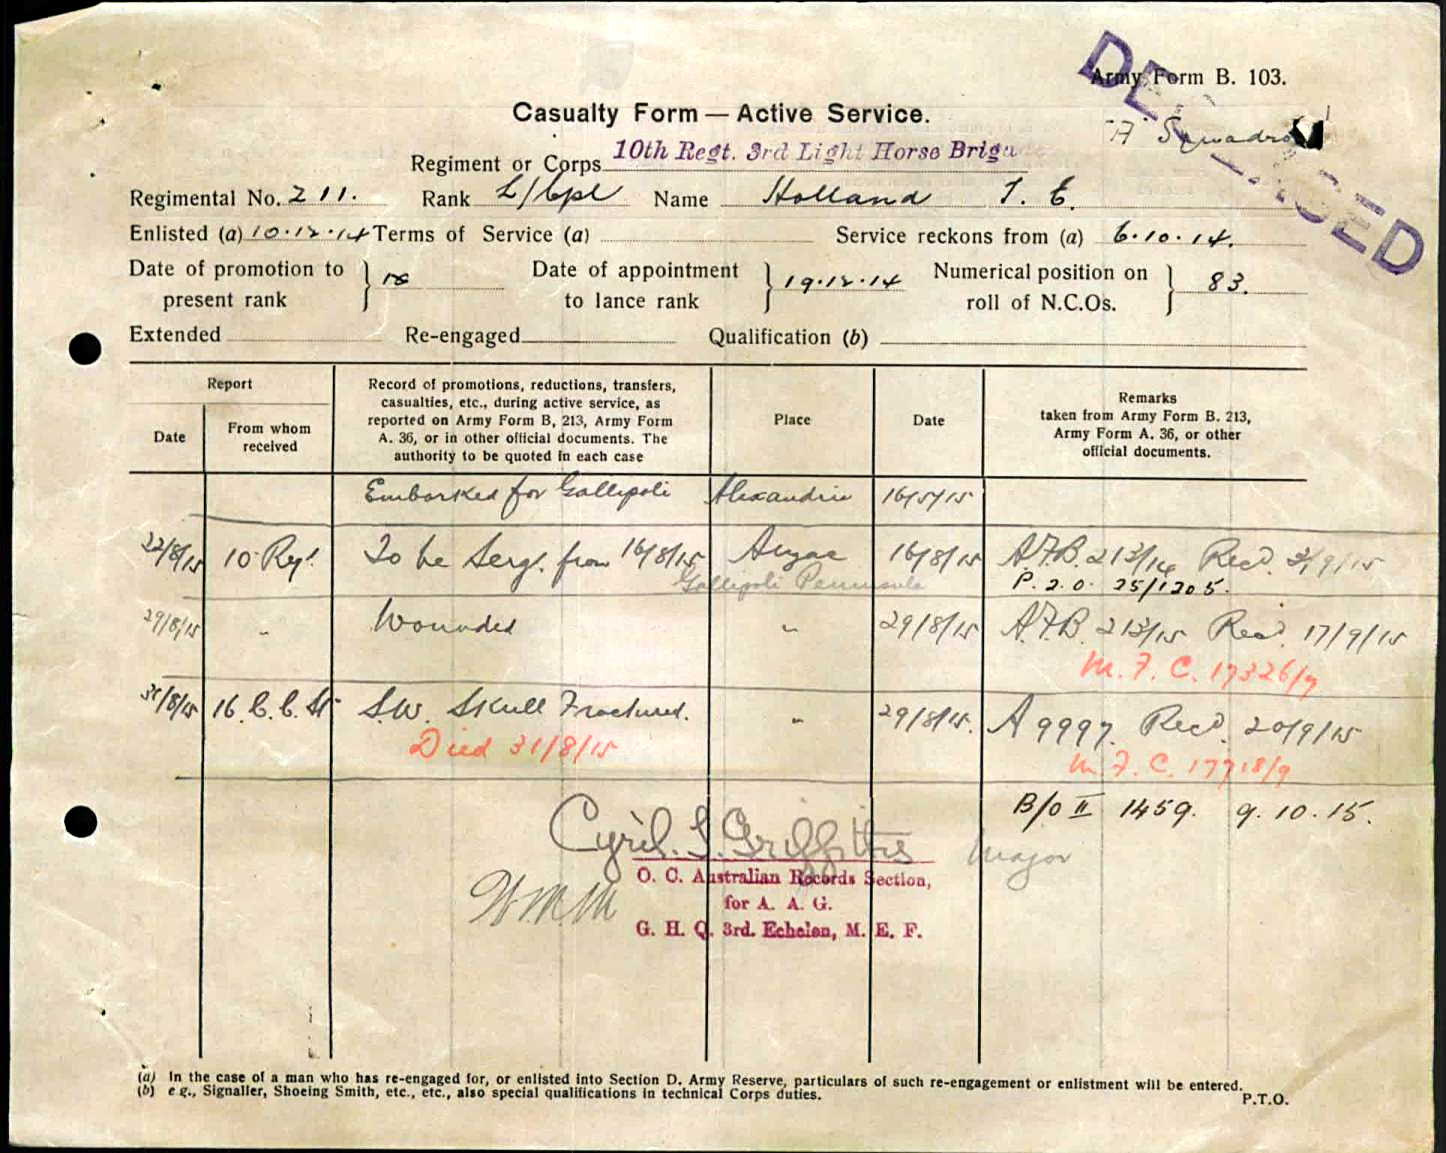 Army Form B. 103.
DECEASED
"A" Squadron
Casualty Form — Active Service.
Regiment or Corps 10th Regt. 3rd Light Horse Brigade
Regimental No. 211. Rank L/Cpl Name Holland T. E.
Enlisted (a) 10.12.14 Terms of Service (a) Service reckons from (a) 6.10.14.
Date of promotion to present rank } Date of appointment to lance rank } 19.12.14 Numerical position on roll of N.C.Os. } 83.
Extended Re-engaged Qualification (b)
Report
Date
From whom received
Record of promotions, reductions, transfers,
casualties, etc., during active service, as
reported on Army Form B, 213, Army Form
A. 36, or in other official documents. The
authority to be quoted in each case
Place
Date
Remarks
taken from Army Form B. 213,
Army Form A. 36, or other
official documents.
Embarked for Gallipoli Alexandria 16/5/15
22/8/15 10 Regt. To be Sergt. from 16/8/15 Anzac 16/8/15 A.F.B. 213/14 Recd. 3/9/15
Gallipoli Peninsula P. 2. 0. 25/1205.
29/8/15 " Wounded " 29/8/15 A.F.B. 213/15 Recd. 17/9/15
M. F. C. 17326/9
31/8/15 16. C. C. St S.W. Skull Fractured. " 29/8/15. A 9997. Recd. 20/9/15
Died 31/8/15 M. F. C. 17718/9
B/O II 1459. 9.10.15.
Cyril. L. Griffiths Major
O. C. Australian Records Section,
for A. A. G.
G. H. Q. 3rd. Echelon, M. E. F.
(a) In the case of a man who has re-engaged for, or enlisted into Section D. Army Reserve, particulars of such re-engagement or enlistment will be entered.
(b) e g., Signaller, Shoeing Smith, etc., etc., also special qualifications in technical Corps duties.
P.T.O.